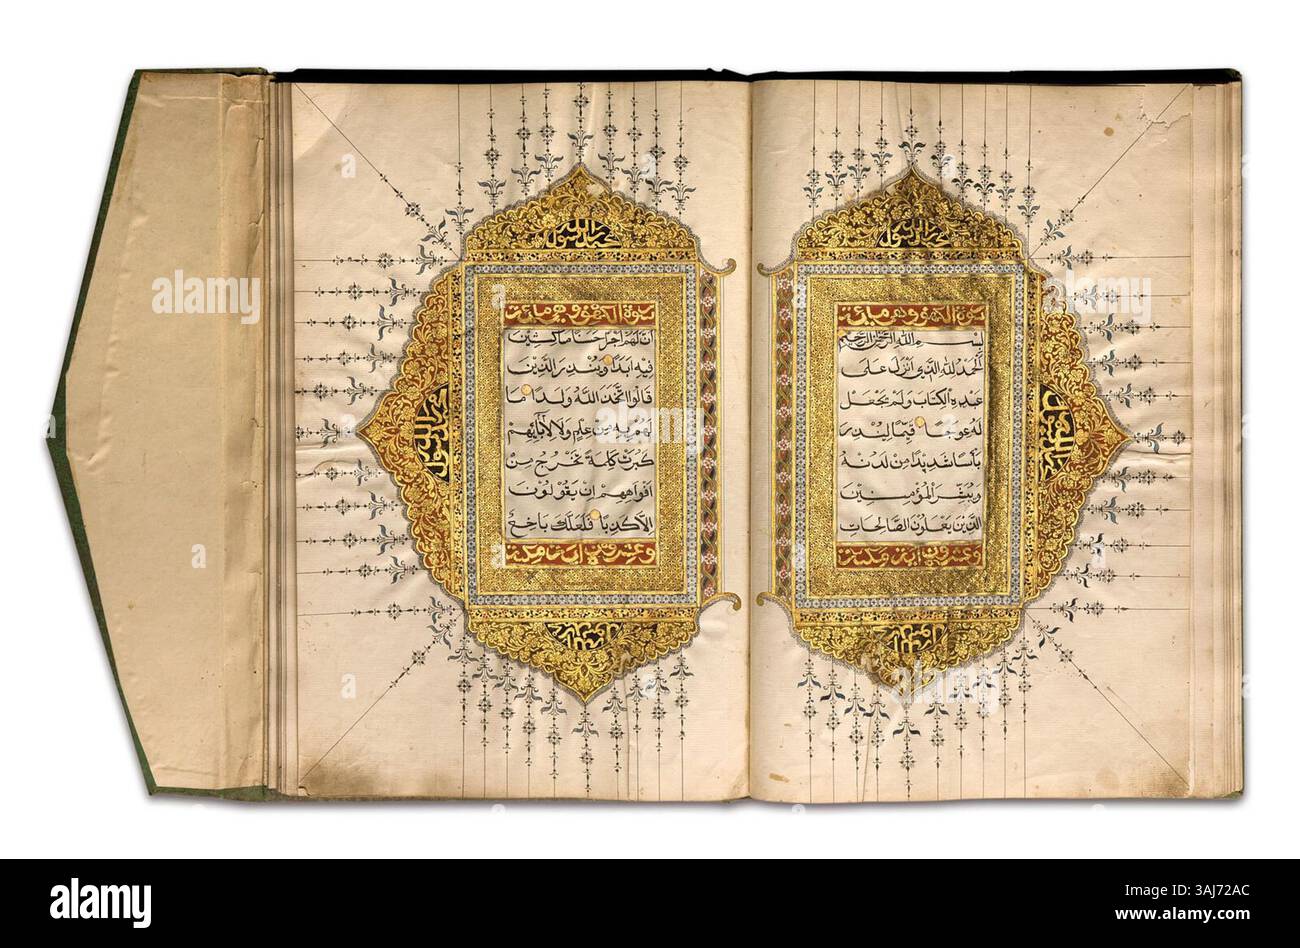 سورة الكهف وهي مائة
بسم الله الرحمن الرحيم
الحمد لله الذي انزل على
عبده الكتاب ولم يجعل
له عوجا قيما لينذر
بأسا شديدا من لدنه
ويبشر المؤمنين
الذين يعملون الصالحات
وعشرون اية مكية
سورة الكهف وهي مائة
ان لهم اجرا حسنا ماكثين
فيه ابدا وينذر الذين
قالوا اتخذ الله ولدا ما
لهم به من علم ولا لآبائهم
كبرت كلمة تخرج من
افواههم ان يقولون
الا كذبا فلعلك باخع
وعشرون اية مكية
alamy
Image ID: 3AJ72AC
www.alamy.com